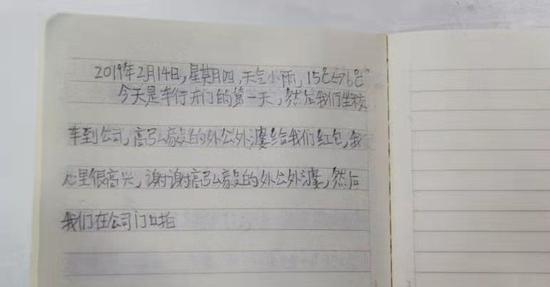 2019年2月14日,星期四,天气小雨,15℃~76℃
今天是车行开门的第一天,然后我们坐校
车到公司,高弘毅的外公外婆给我们红包,我
心里很高兴,谢谢高弘毅的外公外婆,然后
我们在公司门口拍